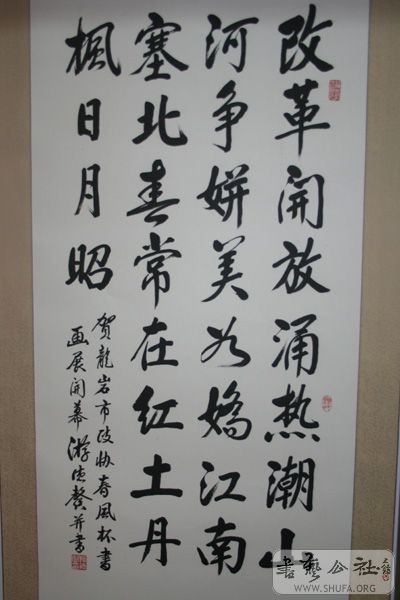 改革開放涌热潮山
河争妍美嬌江南
塞北春常在红土丹
楓日月昭
贺龍岩市政协春风杯书
画展開幕游德馨并書
書藝公社
WWW.SHUFA.ORG